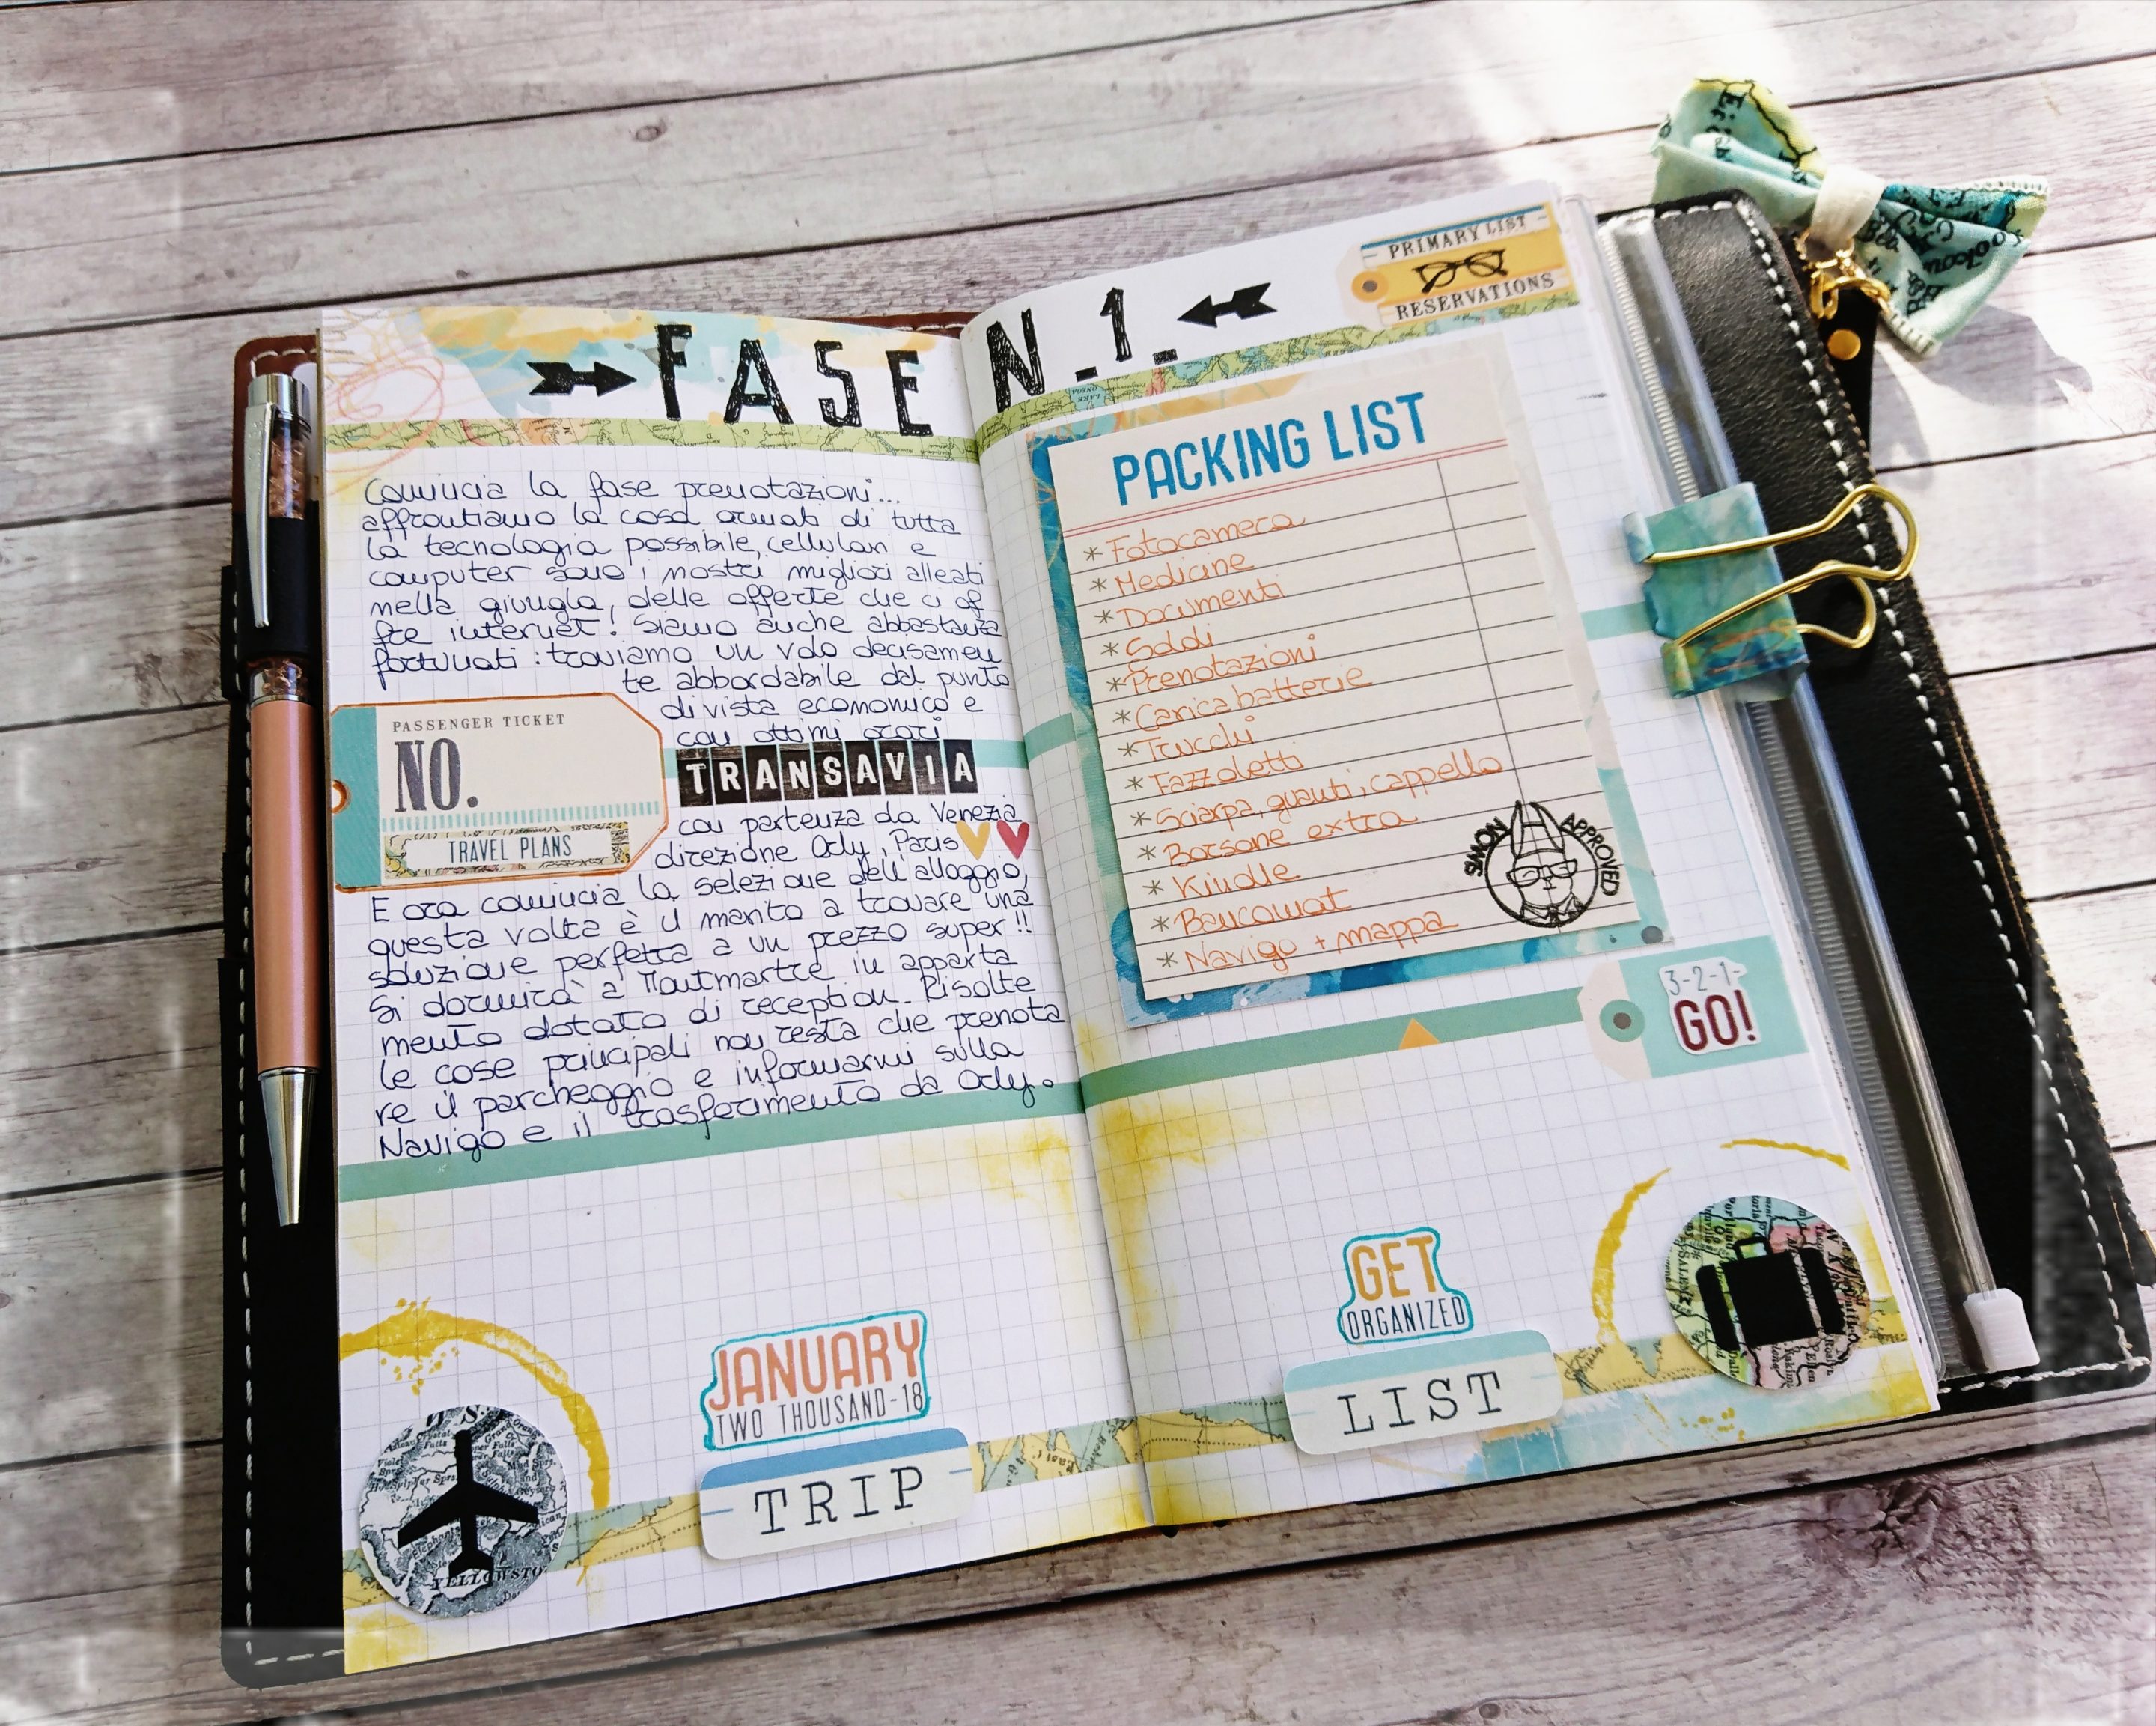 FASE N. 1.
PRIMARY LIST
RESERVATIONS
Comincia la fase prenotazioni...
affrontiamo la cosa armati di tutta
la tecnologia possibile, cellulari e
computer sono i nostri migliori alleati
nella giungla, delle offerte che ci of
fre internet! Siamo anche abbastanza
fortunati: troviamo un volo decisamen
te abbordabile dal punto
di vista economico e
con ottimi orari
TRANSAVIA
con partenza da Venezia
direzione Orly, Paris
PASSENGER TICKET
NO.
TRAVEL PLANS
E ora comincia la selezione dell'alloggio,
questa volta è il marito a trovare una
soluzione perfetta a un prezzo super!!
Si dormirà a Montmartre in apparta
mento dotato di reception. Risolte
le cose principali non resta che prenota
re il parcheggio e informarmi sulla
Navigo e il trasferimento da Orly.
JANUARY
TWO THOUSAND-18
TRIP
YELLOWSTO
PACKING LIST
* Fotocamera
* Medicine
* Documenti
* Soldi
* Prenotazioni
* Carica batterie
* Trucchi
* Fazzoletti
* Sciarpa, guanti, cappello
* Borsone extra
* Kindle
* Bancomat
* Navigo + mappa
SIMON APPROVED
3-2-1-
GO!
GET
ORGANIZED
LIST